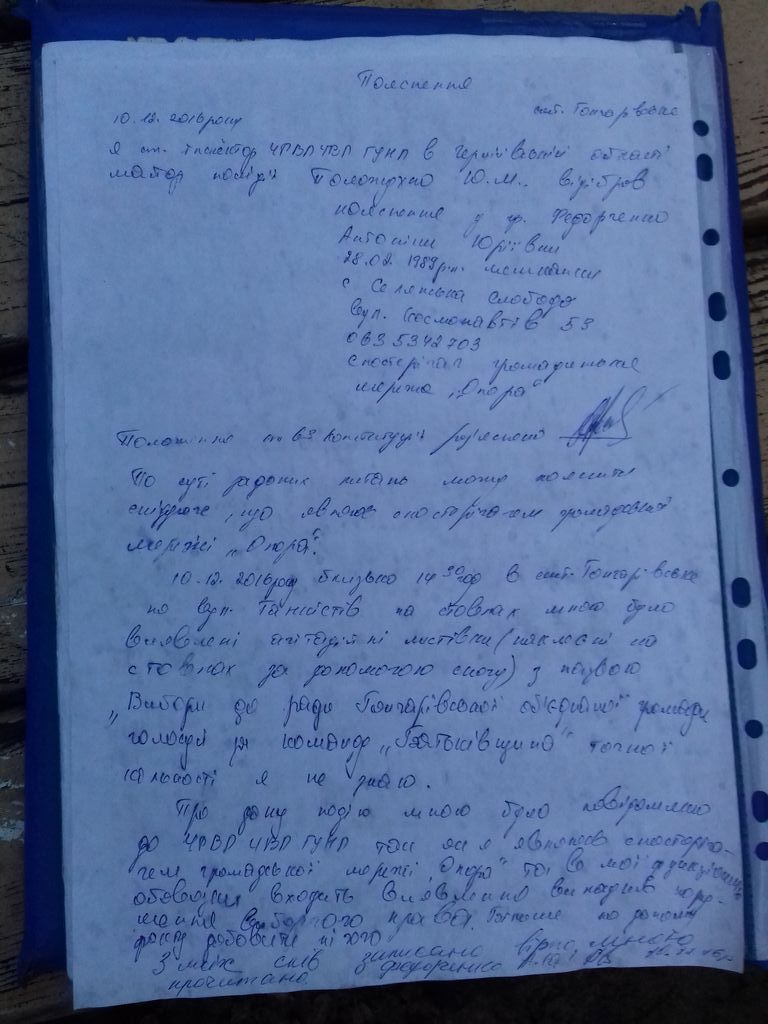 Пояснення
10.12.2016 року смт. Гончарівське
Я ст. інспектор ЧРВП ЧВП ГУНП в Чернігівській області
майор поліції Ю.М. відібрав
пояснення у гр. Федорченко
Антоніни Юріївни
28.02.1989 р.н. мешканки
с Селянська Слобода
вул. Космонавтів 53
063 5342703
спостерігач громадянська
мережа „Опора"
Положення ст 63 Конституції роз'яснені
По суті заданих питань можу пояснити
слідуюче, що являюсь спостерігачем громадської
мережі „Опора".
10.12.2016 року близько 14 30 год в смт. Гончарівське
по вул. Танкістів на стовпах мною було
виявлені агітаційні листівки (наклеєні на
стовпах за допомогою скочу) з назвою
„Вибори до ради Гончарівської об'єднаної громади
голосуй за команду „Батьківщина" точної
кількості я не знаю.
Про дану подію мною було повідомлено
до ЧРВП ЧВП ГУНП так як я являюсь спостеріга-
чем громадської мережі „Опора" та в мої функціональні
обов'язки входить виявлення випадків пору-
шення виборчого права. Більше по даному
факту добавити нічого
З моїх слів записано вірно, мною
прочитано Федорченко